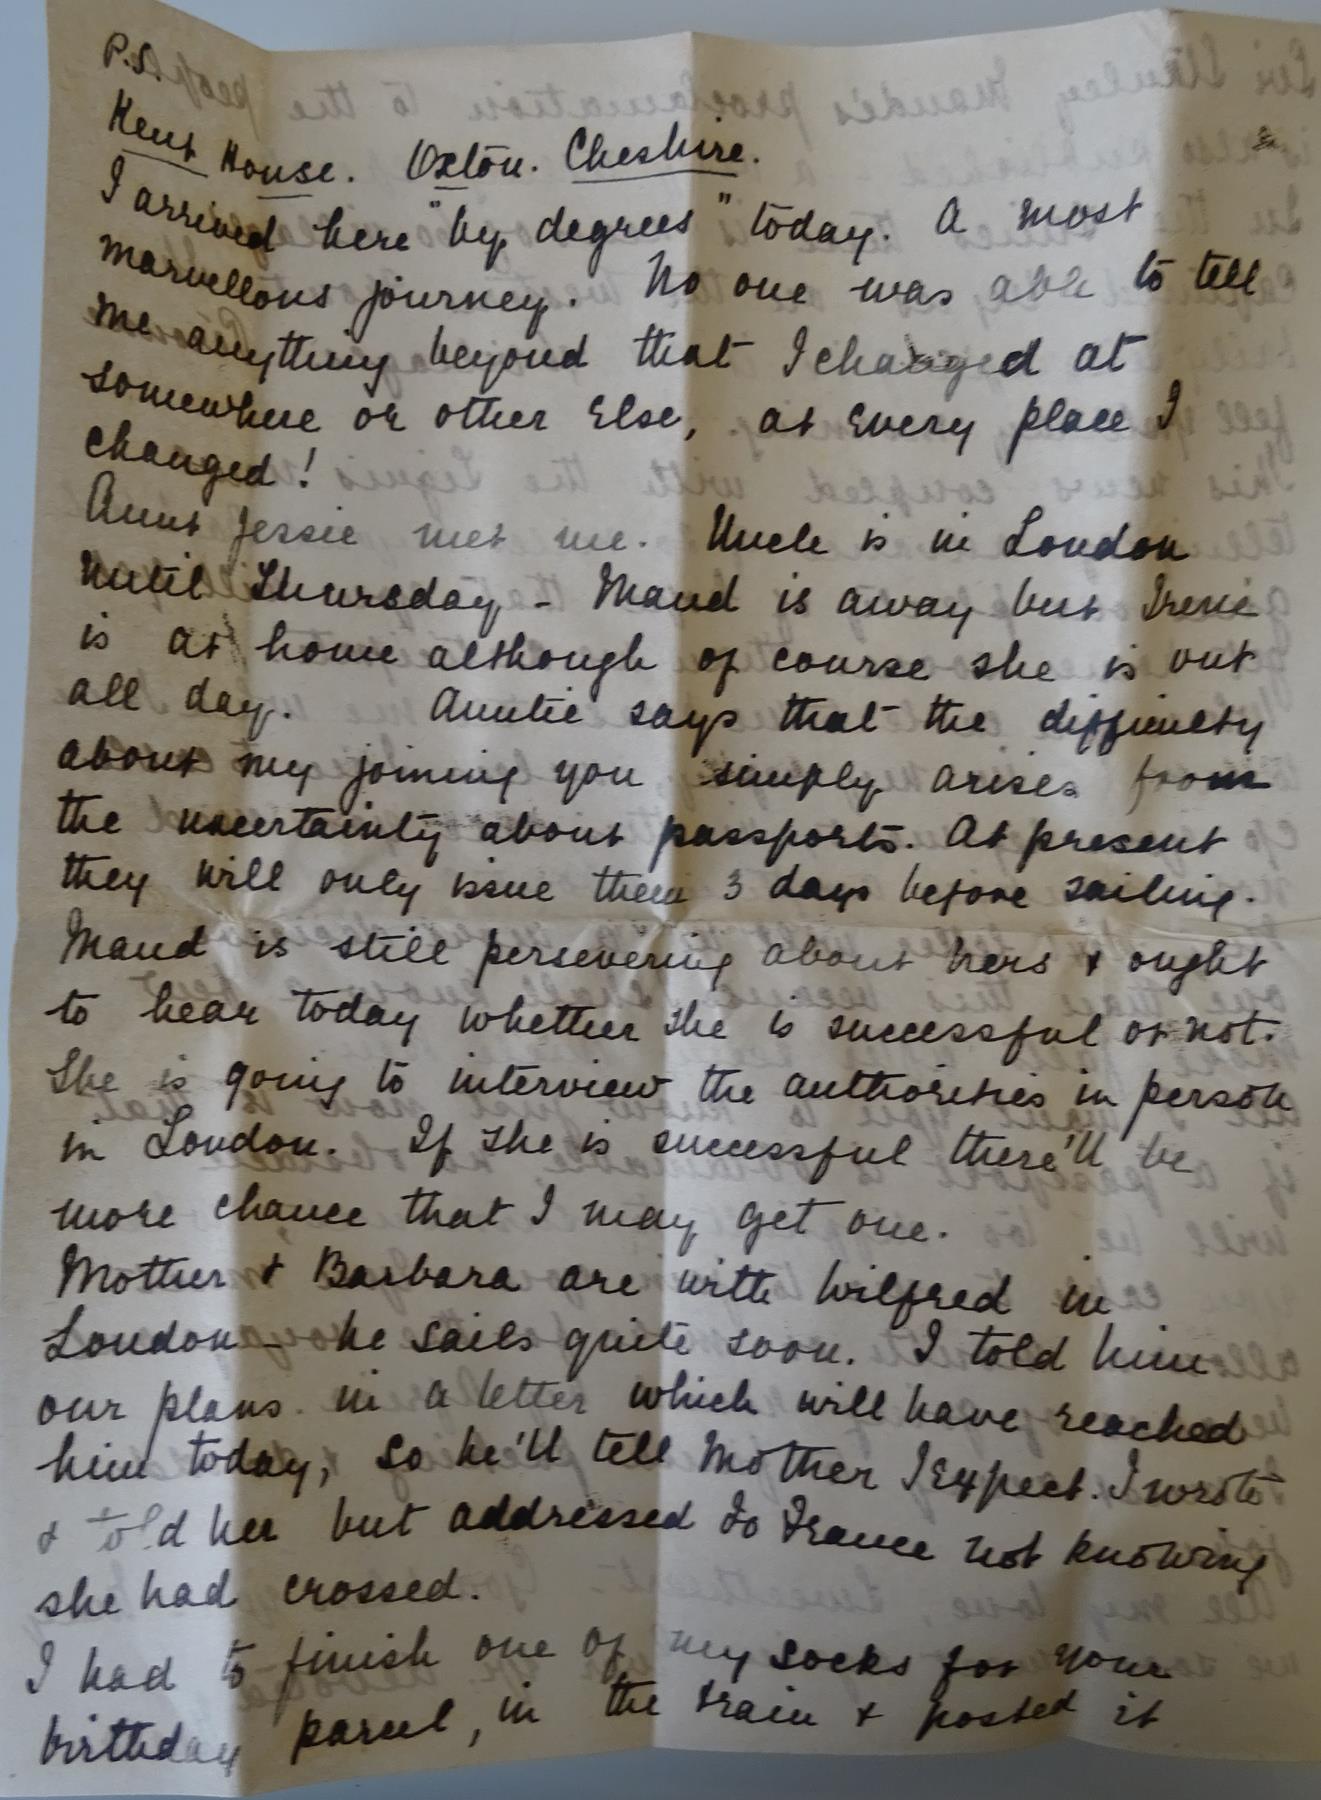 P.S.
Kent House. Oxton. Cheshire.
I arrived here "by degrees" today. A most
marvellous journey. No one was able to tell
me anything beyond that I changed at
somewhere or other else, at every place I
changed!
Aunt Jessie met me. Uncle is in London
until Thursday - Maud is away but Irene
is at home although of course she is out
all day. Auntie says that the difficulty
about my joining you simply arises from
the uncertainty about passports. At present
they will only issue them 3 days before sailing.
Maud is still persevering about hers & ought
to hear today whether she is successful or not.
She is going to interview the authorities in person
in London. If she is successful there'll be
more chance that I may get one.
Mother & Barbara are with Wilfred in
London - he sails quite soon. I told him
our plans in a letter which will have reached
him today, so he'll tell Mother I expect. I wrote
& told her but addressed to France not knowing
she had crossed.
I had to finish one of my socks for your
birthday parcel, in the train & posted it